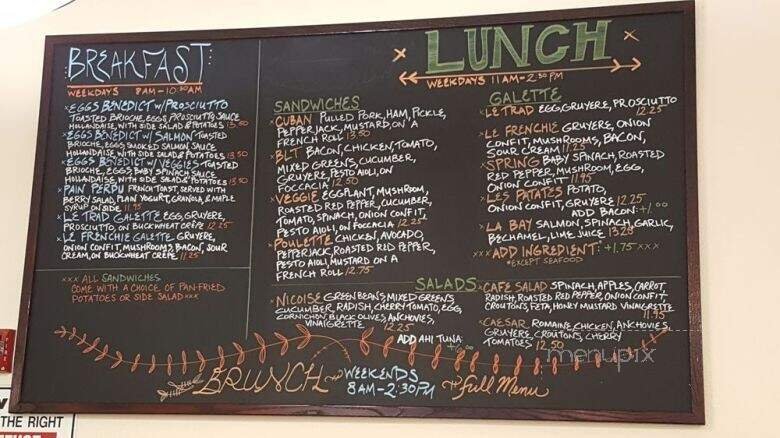 BREAKFAST
WEEKDAYS 8AM-10:30AM
×EGGS BENEDICT W/PROSCIUTTO
TOASTED BRIOCHE, EGGS, PROSCIUTTO, SAUCE
HOLLANDAISE, WITH SIDE SALAD & POTATOES 13.50
×EGGS BENEDICT W/ SALMON TOASTED
BRIOCHE, EGGS SMOKED SALMON SAUCE
HOLLANDAISE WITH SIDE SALAD & POTATOES 13.50
×EGGS BENEDICT W/ VEGGIES TOASTED
BRIOCHE, EGGS BABY SPINACH SAUCE
HOLLANDAISE WITH SIDE SALAD & POTATOES 13.50
×PAIN PERDU FRENCH TOAST, SERVED WITH
BERRY SALAD, PLAIN YOGURT, GRANOLA, & MAPLE
SYRUP ON SIDE 11.95
×LE TRAD GALETTE EGG, GRUYERE,
PROSCIUTTO, ON BUCKWHEAT CREPE 12.25
×LE FRENCHIE GALETTE GRUYERE,
ONION CONFIT, MUSHROOMS, BACON, SOUR
CREAM, ON BUCKWHEAT CREPE 11.25
××× ALL SANDWICHES
COME WITH A CHOICE OF PAN-FRIED
POTATOES OR SIDE SALAD ×××
× LUNCH ×
WEEKDAYS 11AM-2:30PM
SANDWICHES
×CUBAN PULLED PORK, HAM, PICKLE,
PEPPERJACK, MUSTARD, ON A
FRENCH ROLL 13.50
×BLT BACON, CHICKEN, TOMATO,
MIXED GREENS, CUCUMBER,
GRUYERE, PESTO AIOLI, ON
FOCCACIA 12.50
×VEGGIE EGGPLANT, MUSHROOM,
ROASTED RED PEPPER, CUCUMBER,
TOMATO, SPINACH, ONION CONFIT,
PESTO AIOLI, ON FOCCACIA 12.25
×POULETTE CHICKEN, AVOCADO,
PEPPERJACK, ROASTED RED PEPPER,
PESTO AIOLI, MUSTARD ON A
FRENCH ROLL 12.75
GALETTE
×LE TRAD EGG, GRUYERE, PROSCIUTTO
12.25
×LE FRENCHIE GRUYERE, ONION
CONFIT, MUSHROOMS, BACON,
SOUR CREAM 11.25
×SPRING BABY SPINACH, ROASTED
RED PEPPER, MUSHROOM, EGG,
ONION CONFIT 11.95
×LES PATATES POTATO,
ONION CONFIT, GRUYERE 12.25
ADD BACON +1.00
×LA BAY SALMON, SPINACH, GARLIC,
BECHAMEL, LIME JUICE 13.25
×××ADD INGREDIENT: +1.75 ×××
*EXCEPT SEAFOOD
SALADS
×NICOISE GREEN BEANS, MIXED GREENS,
CUCUMBER, RADISH, CHERRY TOMATO, EGG,
CORNICHON, BLACK OLIVES, ANCHOVIES,
VINAIGRETTE 12.25
ADD AHI TUNA
×CAFE SALAD SPINACH, APPLES, CARROT
RADISH, ROASTED RED PEPPER, ONION CONFIT,
CROUTONS, FETA, HONEY MUSTARD VINAIGRETTE
11.95
×CAESAR ROMAINE, CHICKEN, ANCHOVIES,
GRUYERE, CROUTONS, CHERRY
TOMATOES 12.50
BRUNCH WEEKENDS
8AM-2:30PM
Full Menu
menupix
THE RIGHT